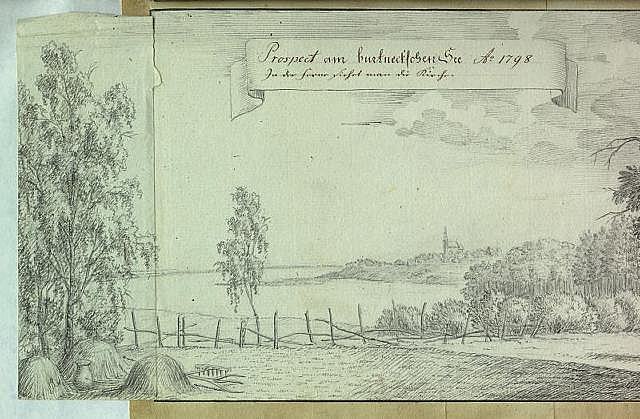 Prospect am burtneckschen See Aº 1798
In der ferne siehet man die Kirche.